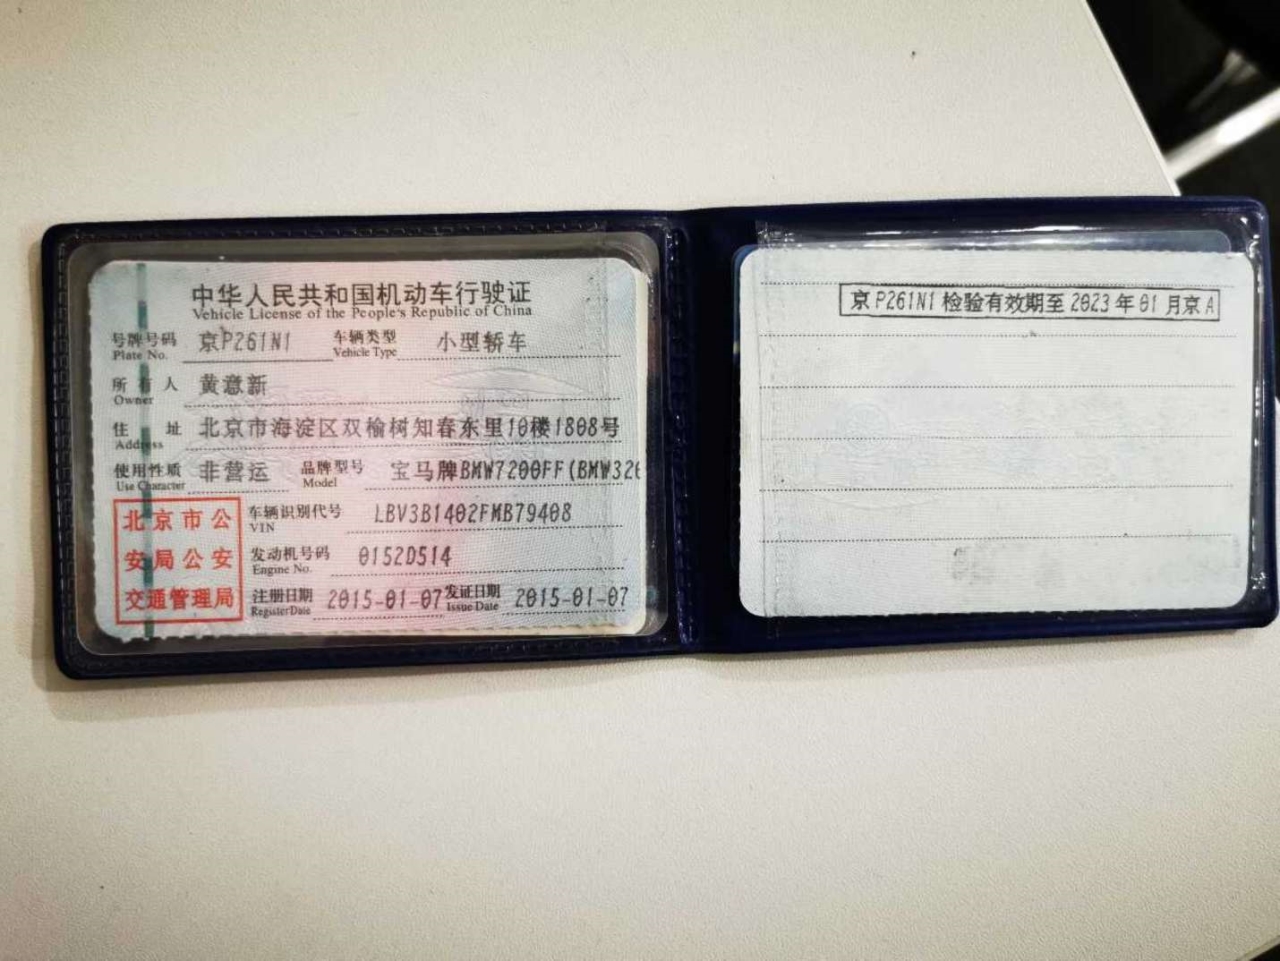 中华人民共和国机动车行驶证
Vehicle License of the People's Republic of China
号牌号码 京P261N1 车辆类型 小型轿车
Plate No. Vehicle Type
所有人 黄意新
Owner
住址 北京市海淀区双榆树知春东里10楼1808号
Address
使用性质 非营运 品牌型号 宝马牌BMW7200FF(BMW320
Use Character Model
北京市公
安局公安
交通管理局
车辆识别代号 LBV3B1402FMB79408
VIN
发动机号码 0152D514
Engine No.
注册日期 2015-01-07 发证日期 2015-01-07
Register Date Issue Date
京P261N1检验有效期至2023年01月京A